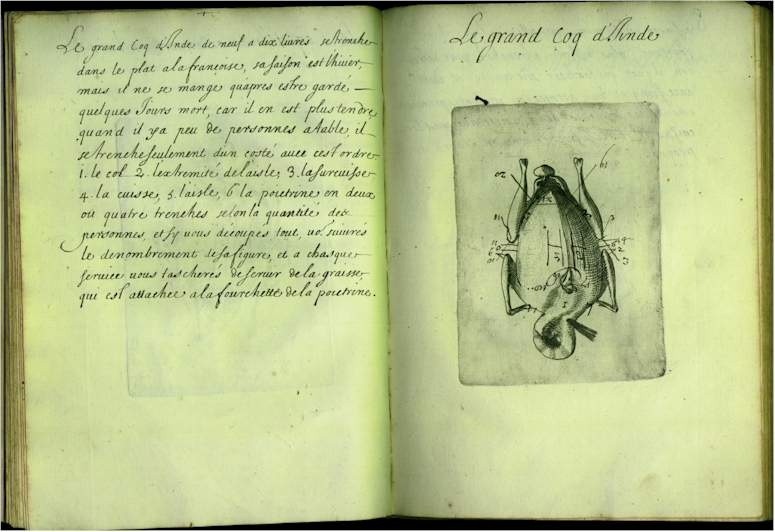 Le grand Coq d'Inde de neuf a dix livres se tranche
dans le plat a la françoise, sa saison est l'hiver,
mais il ne se mange quapres estre garde,
quelques Jours mort, car il en est plus tendre,
quand il ya peu de personnes a table, il
se trenche seulement d'un costé avec cest ordre
1. le col 2. lextremité de laisle, 3. la surcuisse
4. la cuisse, 5. laisle, 6 la poictrine en deux
ou quatre trenches selon la quantité des
personnes, et sy vous découpés tout, vo. suivrés
le denombrement de sa figure, et a chasque
service vous tascherés de servir de la graisse,
qui est attachee a la fourchette de la poictrine.
Le grand Coq d'Inde